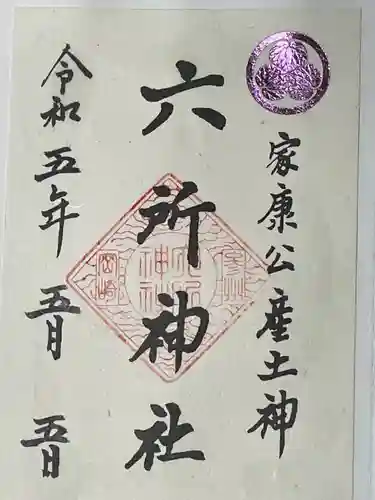 家康公産土神
六所神社
令和五年五月五日
岡崎